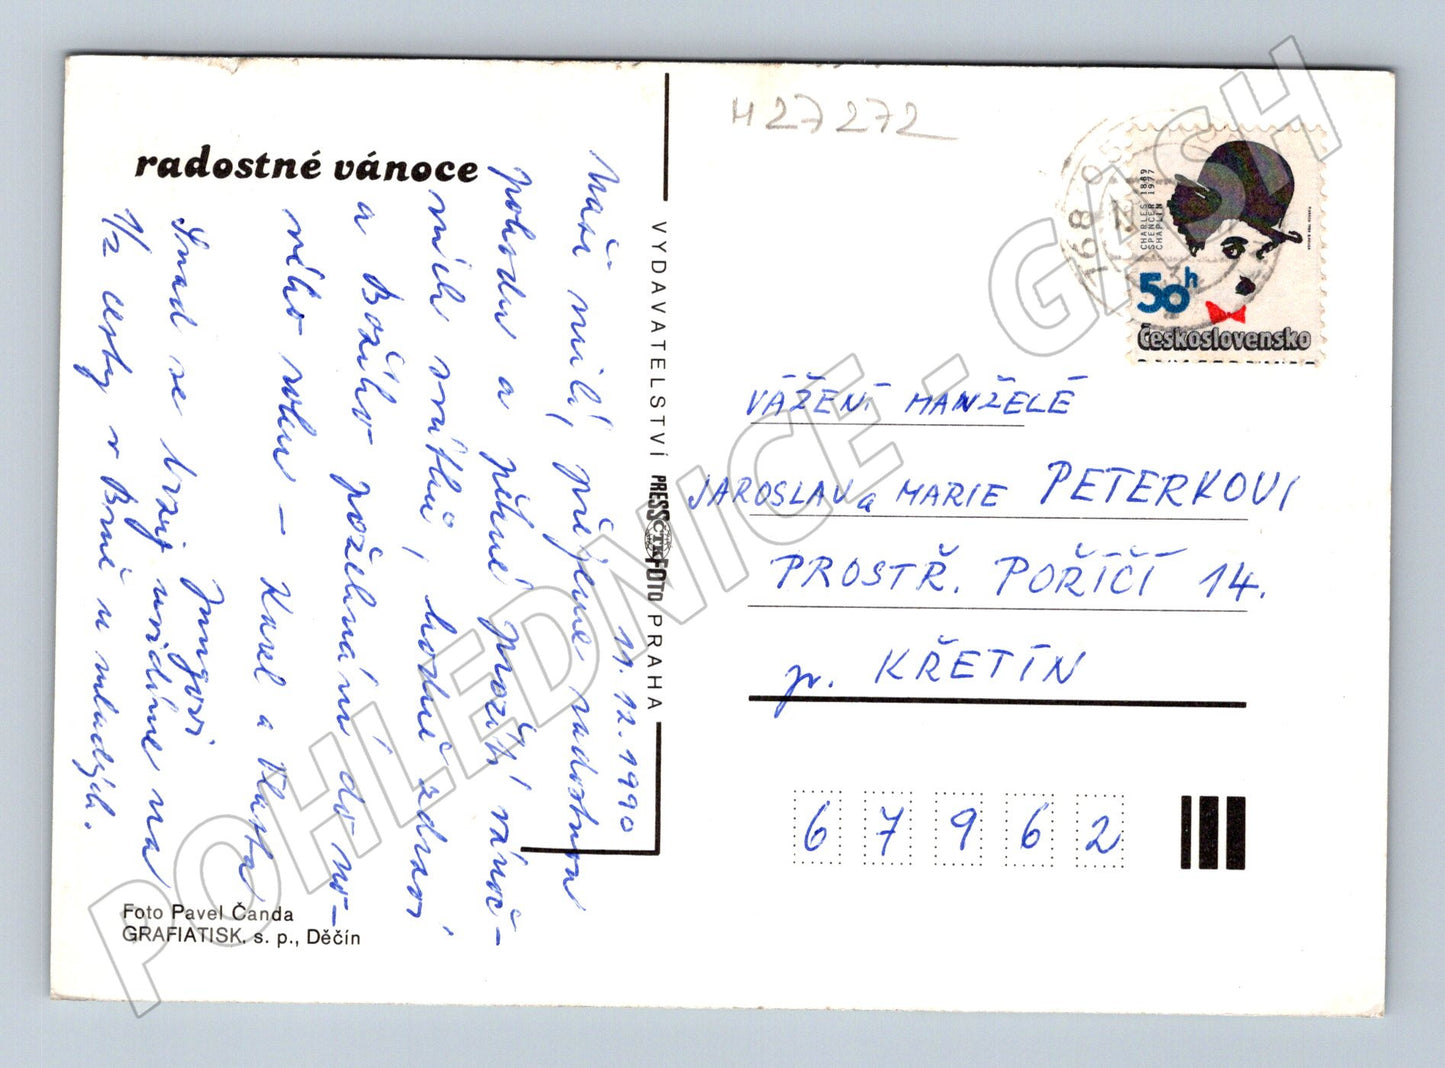 radostné vánoce
11. 12. 1990
Naši milí, přejeme radostnou
pohodu a pěkné prožití vánoč-
ních svátků, hodně zdraví
a Božího požehnání do no-
vého roku – Karel a Vlasta
Jungovi
Snad se brzy uvidíme na
1/2 cesty v Brně u mladých.
Foto Pavel Čanda
GRAFIATISK, s. p., Děčín
VYDAVATELSTVÍ PRESSFOTO PRAHA
ČTK
H 27272
CHARLES 1889
SPENCER 1977
CHAPLIN
50h
Československo
VÁŽENÍ MANŽELÉ
JAROSLAV a MARIE PETERKOVI
PROSTŘ. POŘÍČÍ 14.
p. KŘETÍN
6 7 9 6 2
POHLEDNICE - GASH